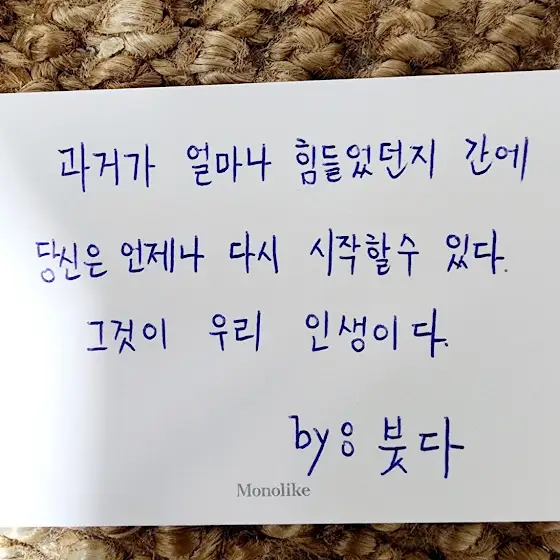 과거가 얼마나 힘들었던지 간에
당신은 언제나 다시 시작할수 있다.
그것이 우리 인생이다.
by: 붓다
Monolike